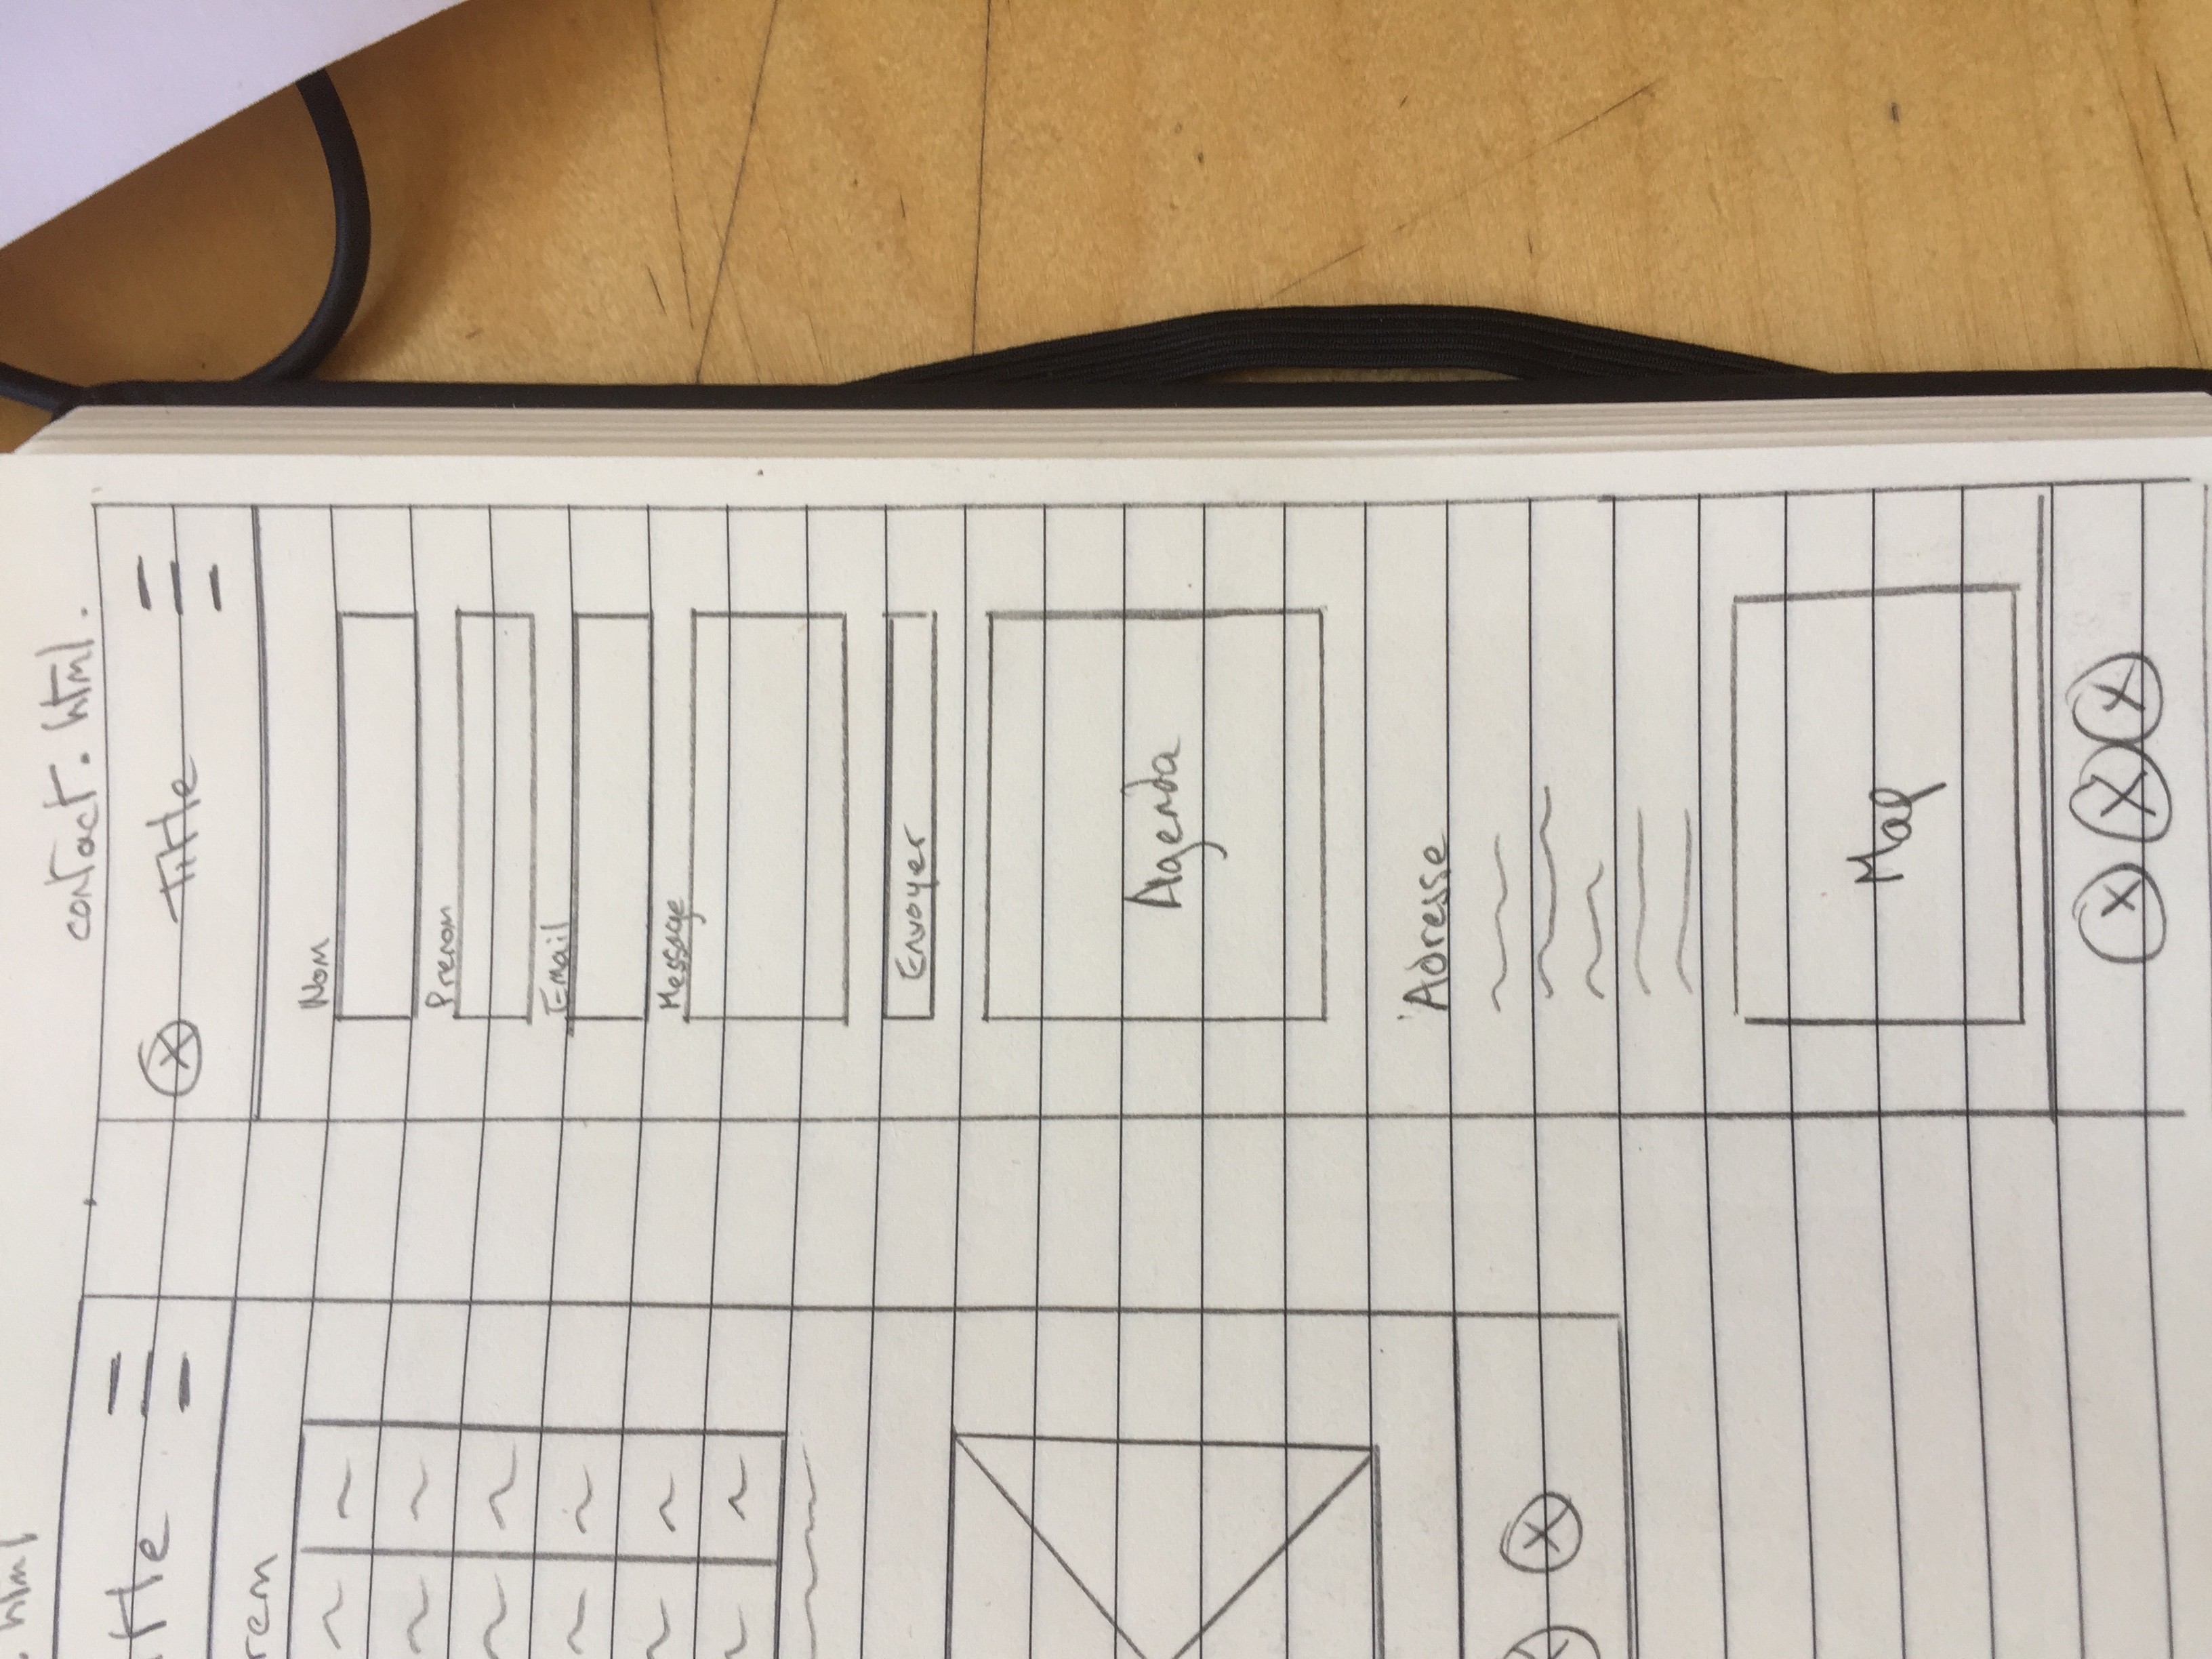 . html
contact. html.
itle
Title
rem
Nom
Prenom
Email
Message
Envoyer
Agenda
Adresse
Map